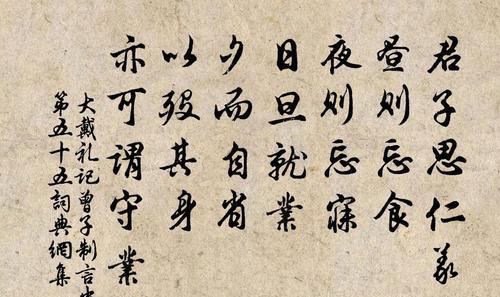 君子思仁義
晝則忘食
夜則忘寐
日旦就業
夕而自省
以殁其身
亦可謂守業
大戴礼記曾子制言中
第五十五詞典網集